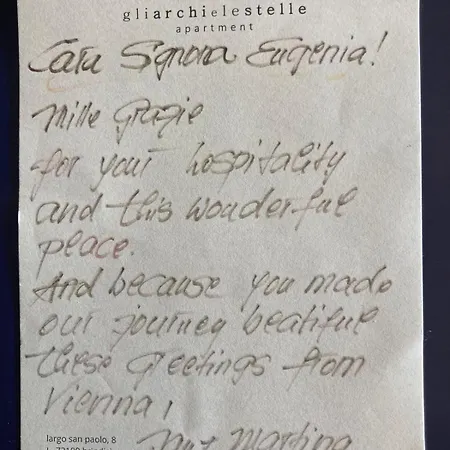 gliarchielestelle
apartment
Cara Signora Eugenia!
Mille Grazie
for your hospitality
and this wonderful
place.
And because you made
our journey beatiful
these greetings from
Vienna,
largo san paolo, 8
Martina